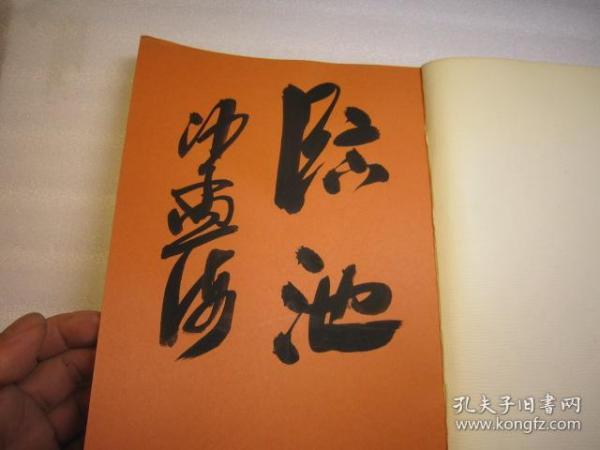 临池
沙孟海
孔夫子旧书网
www.kongfz.com